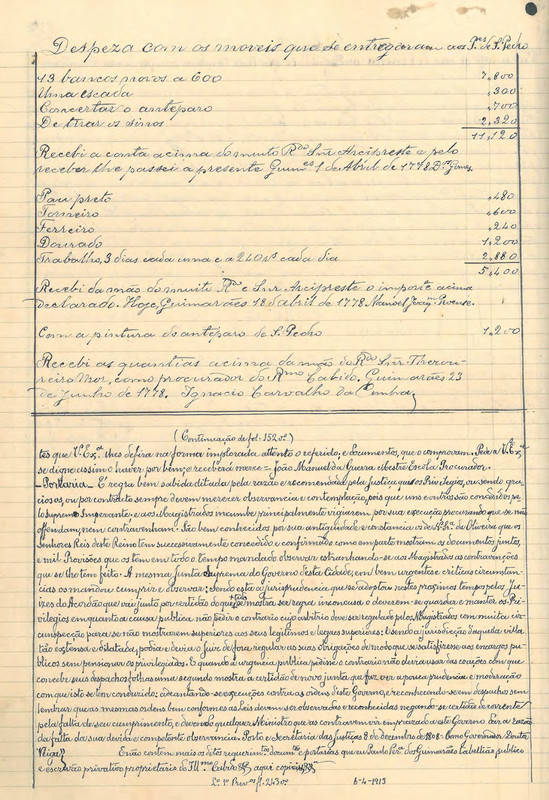 Despeza com os moveis que se entregaram aos P.es de S. Pedro
13 bancos novos a 600 7,800
Uma escada ,300
Concertar o anteparo ,700
De tirar os sinos 2,320
11,120
Recebi a conta acima do muito R.do Snr Arcipreste e pelo
receber lhe passei a presente Guim.es 1 de Abril de 1778
Pau preto ,480
Torneiro ,600
Ferreiro ,240
Dourado 1,200
Trabalho, 3 dias cada uma e a 240 rs cada dia 2,880
5,400
Recebi da mão do muito R.do e Snr. Arcipreste o importe acima
declarado. Hoje, Guimarães 18 d'abril de 1778. Manoel
Com a pintura do anteparo de S. Pedro 1,200
Recebi as quantias acima da mão do R.do Snr. Thezou-
reiro Mor, como procurador do R.mo Cabido. Guimarães 23
de Junho de 1778. Ignacio Carvalho da Cunha
(Continuação de fol. 152 v.º)
tes que V. Ex.ª lhes defira na forma implorada, attento o referido, e documentos, que o comprovam. Pede a V. Ex.ª
se digne assim o haver por bem; e receberá mercê = João Manuel da Guerra Mestre Escola Procurador.
- Portaria - É regra bem sabida ditada pela razão e recomendada pela justiça que os Privilegios, ou sendo gra-
ciosos, ou por contrato sempre devem merecer observancia e contemplação, pois que uns e outros são concedidos pe-
lo supremo Imperante; e aos Magistrados incumbe principalmente vigiarem por sua execução procurando que se não
offendam, nem contravenham. São bem conhecidos por sua antiguidade e constancia os de N. Sr.ª da Oliveira que os
Senhores Reis deste Reino tem successivamente concedido e confirmado como em parte mostram os documentos juntos,
e mil Provisões que os tem em todo o tempo mandado observar estranhando-se aos Magistrados as contravenções
que se lhe tem feito. A mesma Junta Suprema do Governo desta Cidade, em bem urgentes, e criticas circunstan-
cias os mandou cumprir e observar: sendo esta a jurisprudencia que se adoptou nestes proximos tempos pelos Jui-
zes do Acordão que vai junto por certidão do que se mostra ser regra inconcusa o deverem-se guardar e manter os Pri-
vilegios em quanto a causa publica não pedir o contrario cujo arbitrio deve ser regulado pelos Magistrados com muita cir-
cumspecção para se não mostrarem superiores aos seus legitimos e legaes superiores: E sendo a jurisdicção daquela villa
tão extensa e dilatada, podia e devia o Juiz de fora regular as suas obrigações de modo que se satisfizesse aos encargos pu-
blicos sem pensionar os privilegiados. E quando a urgencia publica pedisse o contrario não devia usar das expressões com que
concebe seus despachos folhas uma segundo mostra a certidão de novo junta que fez ver a pouca prudencia e moderação
com que isto se tem conduzido; adeantando-se execuções contra as ordens deste Governo, e reconhecendo-se em despacho sem
lembrar que as mesmas ordens bem conformes as Leis devem ser observadas e reconhecidas negando-se certidões
pela falta de seu cumprimento, e devendo qualquer Ministro que as contravem vir emprazado a este Governo dar a razão
da falta da sua devida e competente observancia. Porto e Secretaria das Justiças 8 de dezembro de 1808. Como Governador
E não contem mais os ditos requerim.tos docum.tos e portarias que eu Paulo Per.ª dos Guimarães Tabellião publico
e escrivão privativo proprietario do Ill.mo Cabido aqui copiei
L.º 1º Priv.os f. 243 v.º 6-4-1913